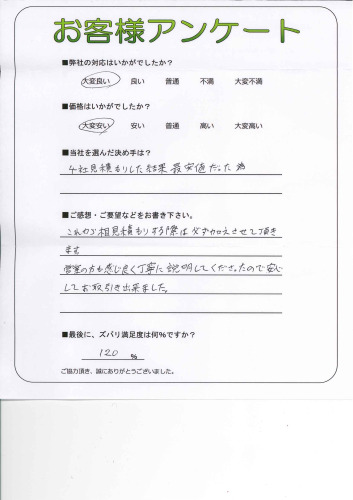 お客様アンケート
■弊社の対応はいかがでしたか？
大変良い 良い 普通 不満 大変不満
■価格はいかがでしたか？
大変安い 安い 普通 高い 大変高い
■当社を選んだ決め手は？
4社見積もりした結果最安値だった為
■ご感想・ご要望などをお書き下さい。
これから相見積もりする際は必ず加えさせて頂き
ます
営業の方も感じ良く丁寧に説明してくださったので安心
してお取引き出来ました。
■最後に、ズバリ満足度は何％ですか？
120 ％
ご協力頂き、誠にありがとうございました。